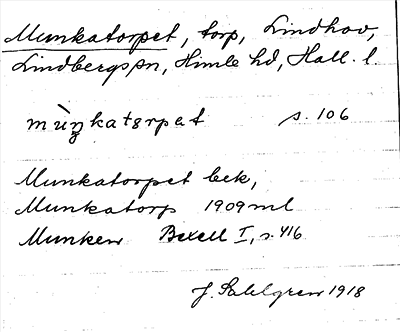 Munkatorpet, torp, Lindhov,
Lindbergs sn, Himle hd, Hall. l.
mùŋkatɐrpet s. 106
Munkatorpet bek,
Munkatorp 1909 ml
Munken Bexell I, s. 416
J. Sahlgren 1918